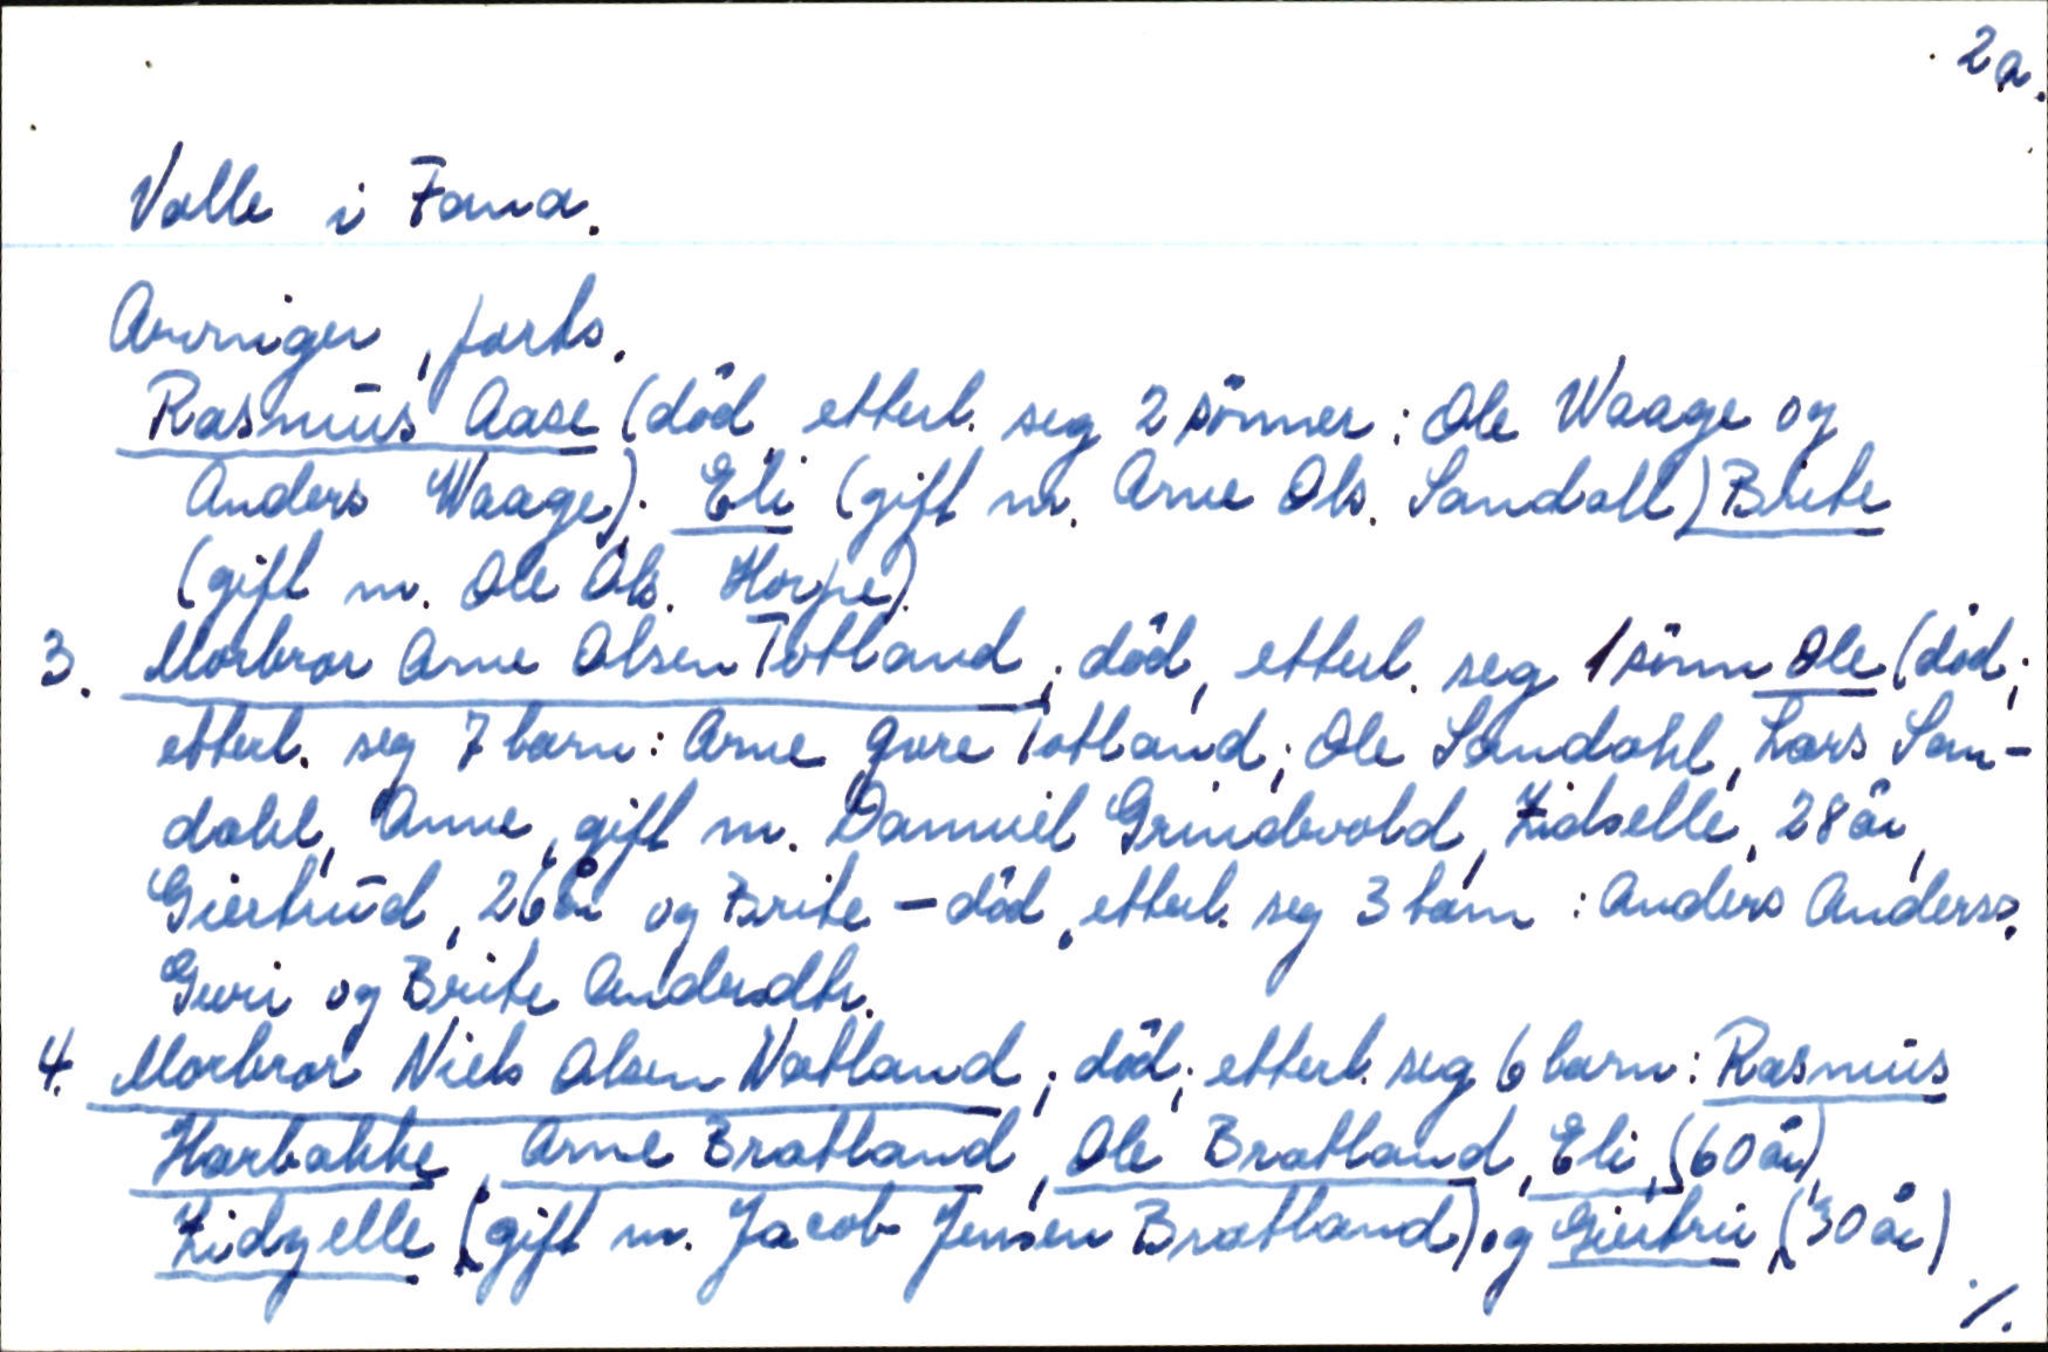 2a.
Valle i Fana.
Arvinger, forts.
Rasmus Aase (död, etterl. seg 2 sönner: Ole Waage og
Anders Waage). Eli (gift m. Arne Ols. Sandall) Brite
(gift m. Ole Ols. Horpe).
3. Morbror Arne Olsen Totland; död, etterl. seg 1 sönn Ole (död;
etterl. seg 7 barn: Arne Totland; Ole Sandahl, Lars San-
dahl, Anne, gift m. Damuel Grindevold, Zidselle, 28 år,
Giertrud, 26 år og Brite - död, etterl. seg 3 barn: Anders Anderss.
Guri og Brite Andersdtr.
4. Morbror Niels Olsen Natland; död; etterl. seg 6 barn: Rasmus
Harbakke, Arne Bratland, Ole Bratland, Eli, (60 år),
Zidzelle (gift m. Jacob Jensen Bratland) og Giertru (30 år)
./.